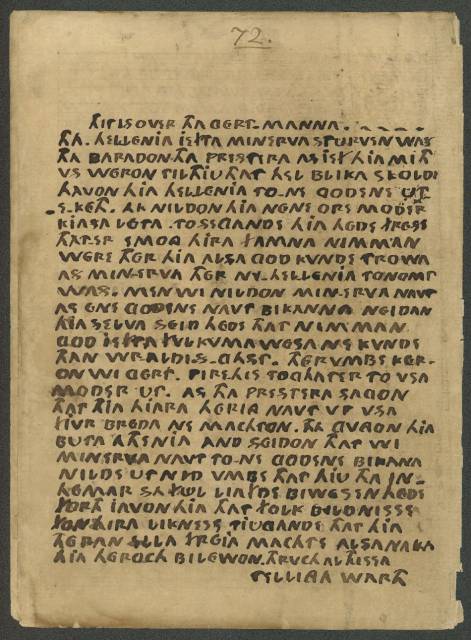 72.
HIT IS OVER THA GERT-MANNA.
THA. HELLENIA IEFTA MINERVA STURVEN WAS
THA BARADON THA PRESTERA AS IEF HIA MITH
VS WERON TIL THIU THAT HEL BLIKA SKOLDE
HAVON HIA HELLENIA TO-NE GODENE UT-
E-KETH. AK NILDON HIA NENE ORE MODER
KIASA LETA. TO SEGANDE HIA HEDE FRESE
THAT ER EMOG HIRA FAMNA NIMMAN
WERE THER HIA ALSA GOD KVNDE TROWA
AS MINERVA THER NY-HELLENIA TONOMT
WAS. MEN WI NILDON MINERVA NAVT
AS ENE GODENE NAVT BIKANNA NEIDAN
HIA SELVA SEID HEDE THAT NIMMAN
GOD IEFTA FULKUMA WESA NE KVNDE
THAN WRALDIS GAST. THERVMBE KER-
ON WI GERT. PIRE HIS TOGHATER TO VSA
MODER UT. AS THA PRESTERA SAGON
THAT HIA HIARA HERIG NAVT UP USA
FIVR BREDA NE MACHTON. THA GVGON HIA
BUTA ATHENIA AND SEIDON THAT WI
MINERVA NAVT TO-NE GODENE BIKANA
NILDE UT NID VMBE THAT HIU THA IN-
HEMAR SA FUL LIAFDE BIWESEN HEDE
FORTH IAVON HIA THAT FOLK BILDNISSE
FON HIRA LIKNESE TIUGANDE THAT HIA
THERAN ELLA FREGIA MACHTE ALSA NAKA
HIA HEROCH BILEWON. THRUCH AL THISSA
TELLIGA WARTH